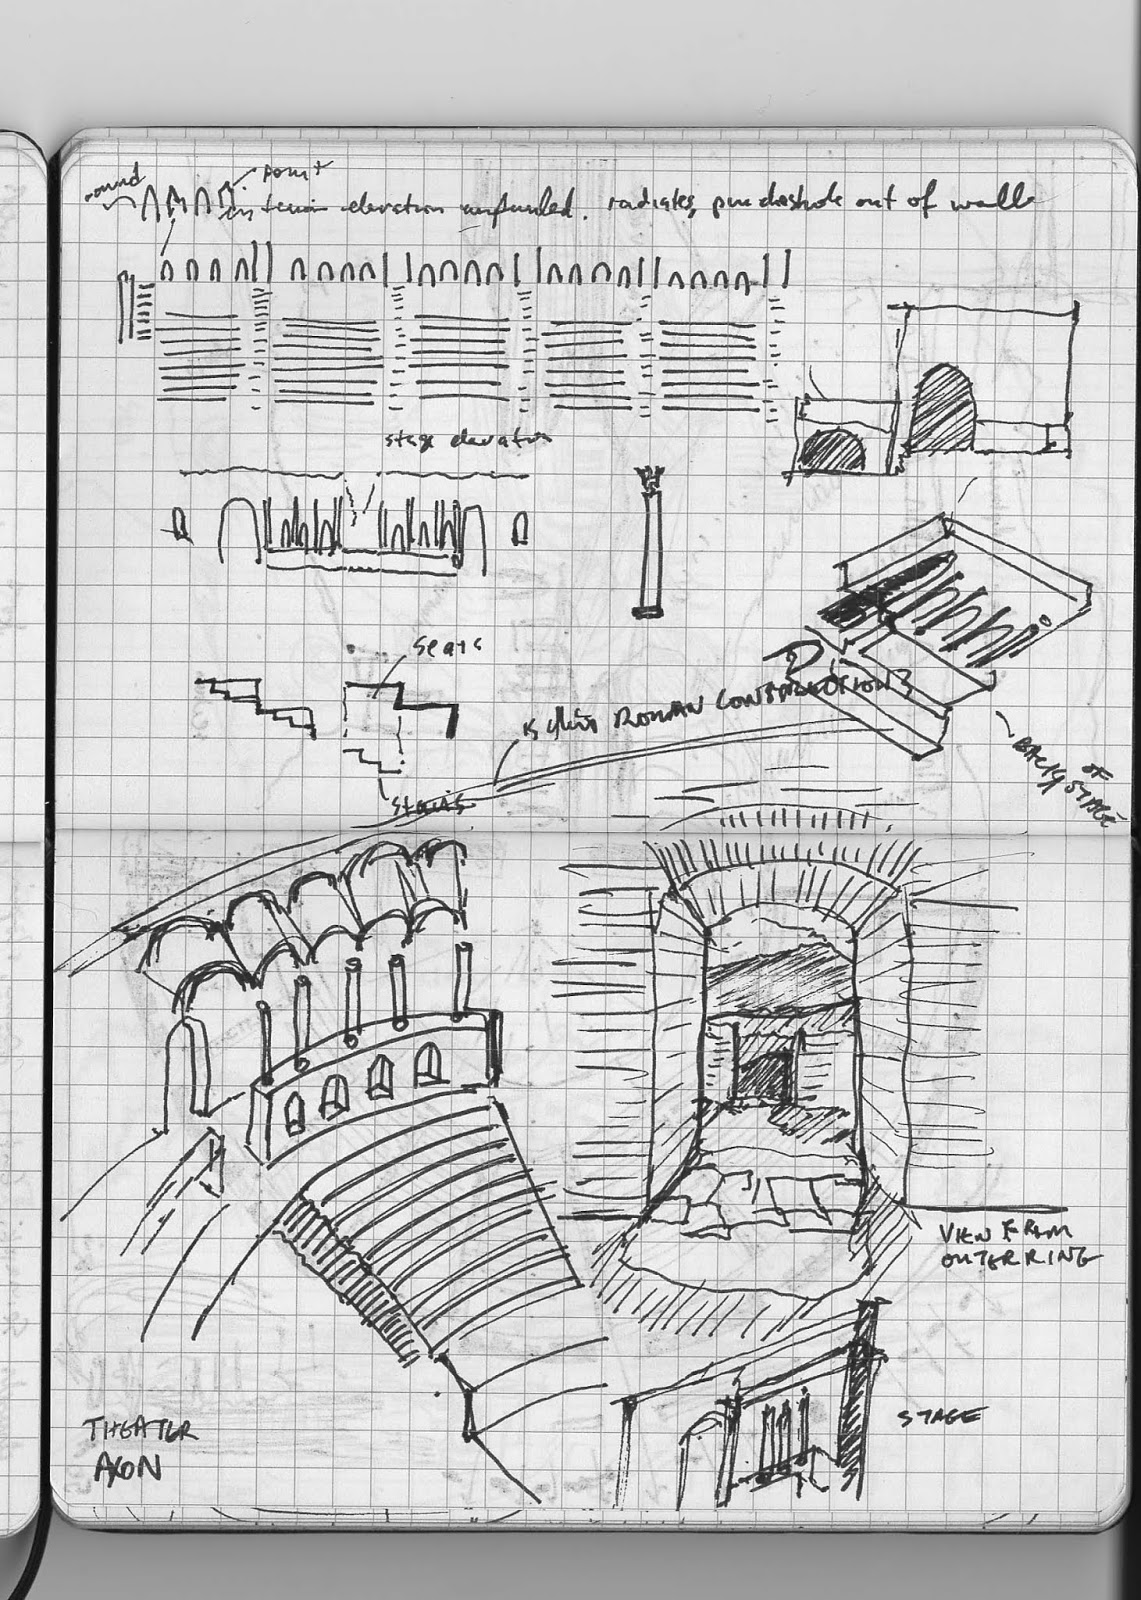 round
point
interior elevation unfurled. radiates, out of wall
stage elevation
seats
stairs
is this ROMAN CONSTRUCTION?
BACK OF STAGE
VIEW FROM
OUTER RING
THEATER
AXON
STAGE